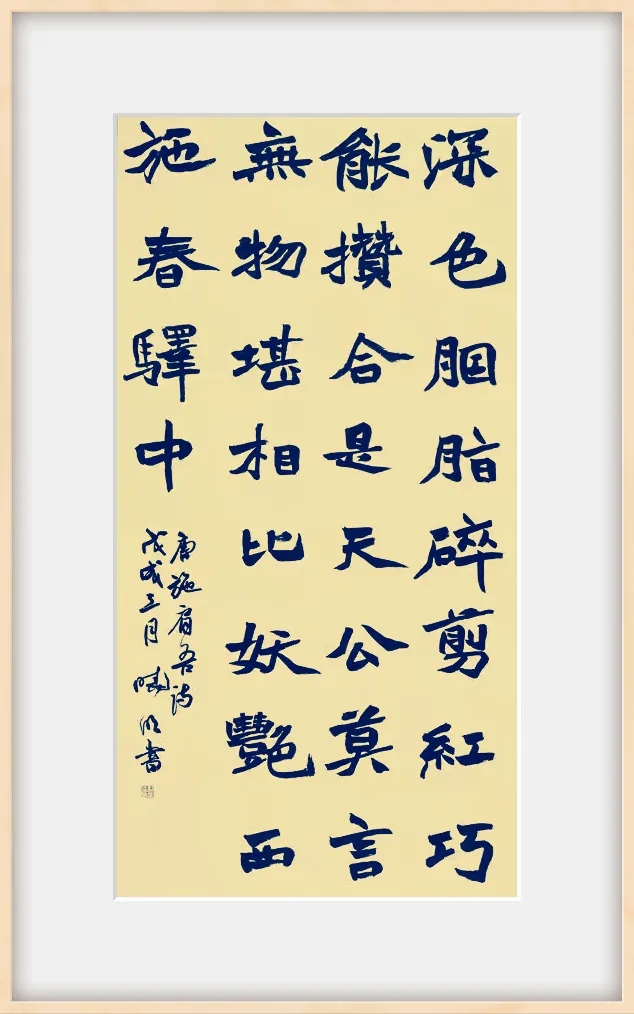 深色胭脂碎剪紅巧
能攢合是天公莫言
無物堪相比妖艷西
施春驛中
唐施肩吾詩
戊戌三月曉明書